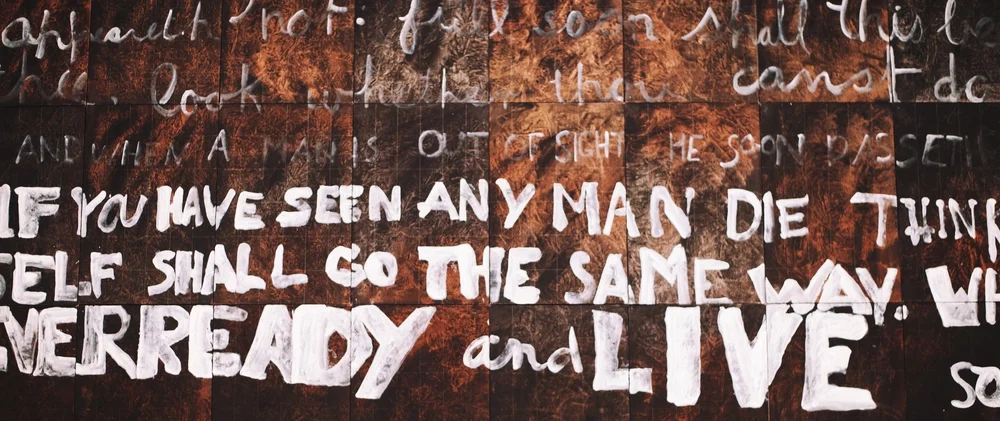 appeareth not. full soon shall this be
thee. look whether thou canst do
AND WHEN A MAN IS OUT OF SIGHT HE SOON PASSETH
IF YOU HAVE SEEN ANY MAN DIE THINK
SELF SHALL GO THE SAME WAY. WH
EVER READY and LIVE
SO